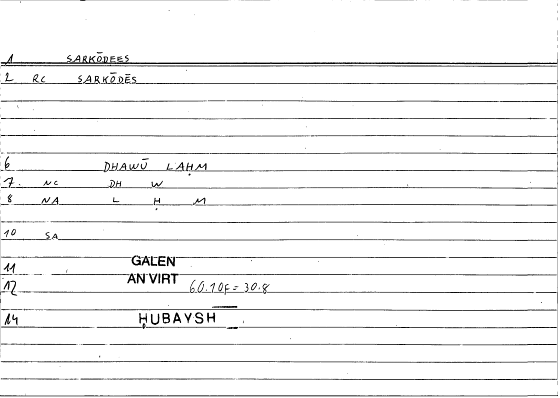 1 SARKŌDEES
2 RC SARKŌDĒS
6 DHAWŪ LAḤM
7. NC DH W
8 NA L Ḥ M
10 SA
11 GALEN
12 AN VIRT 60.10f = 30.8
14 ḤUBAYSH